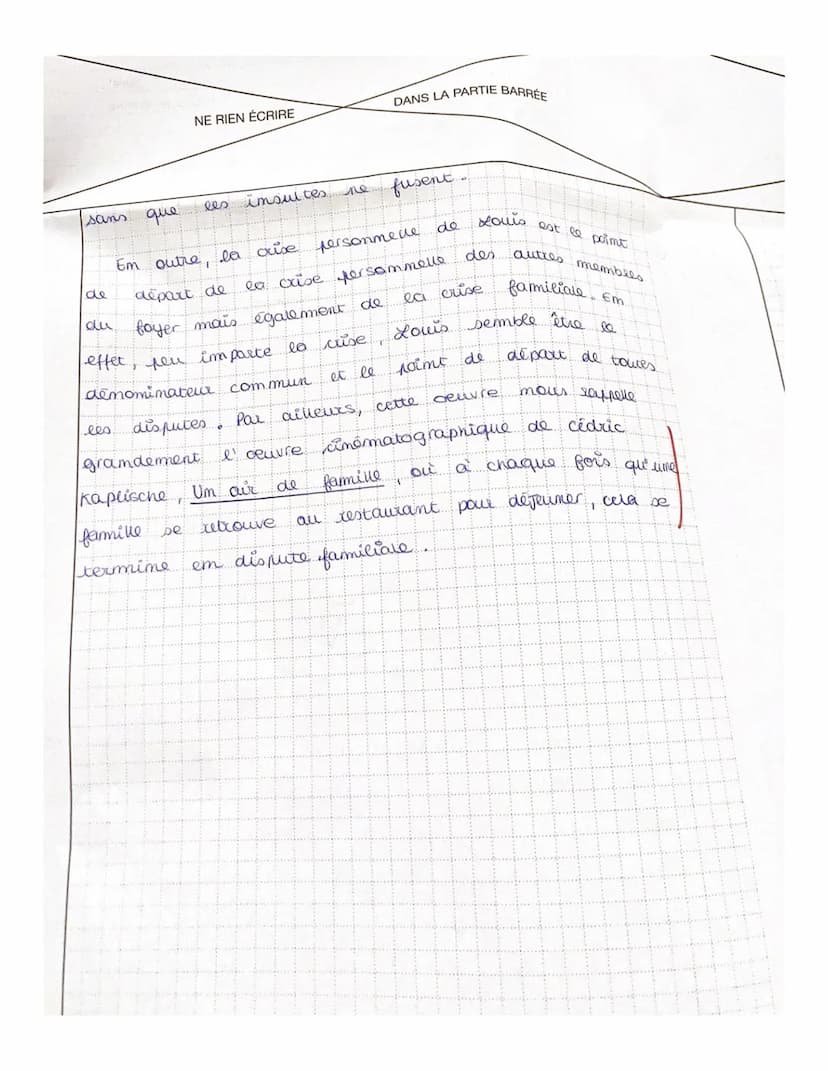 NE RIEN ÉCRIRE
DANS LA PARTIE BARRÉE
sans que les insultes ne fusent.
En outre, la crise personnelle de Louis est le point
de départ de la crise personnelle des autres membres
du foyer mais également de la crise familiale. En
effet, peu importe la crise, Louis semble être le
dénominateur commun et le point de départ de toutes
les disputes. Par ailleurs, cette oeuvre nous rappelle
grandement l'oeuvre cinématographique de Cédric
Kaplische, Un air de famille, où à chaque fois qu'une
famille se retrouve au restaurant pour déjeuner, cela se
termine en dispute familiale.